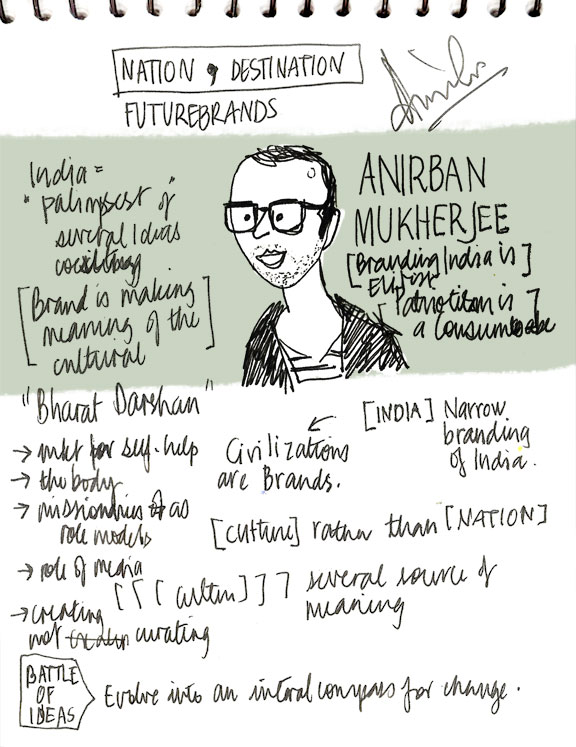 NATION , DESTINATION
FUTUREBRANDS
India =
"palimpsest of"
several Ideas
[Brand is making
meaning of the
cultural]
ANIRBAN
MUKHERJEE
[Branding India is]
Elitist
[Patriotism is]
a
"Bharat Darshan"
→ mkt for self-help
→ the body
→ missionaries as
role models
→ role of media
→ creating
not curating
← [INDIA] Narrow
branding
of India.
Civilizations
are Brands.
[culture] rather than [NATION]
[[[culture]]] several source of
meaning
BATTLE
OF
IDEAS
Evolve into an compass for change.